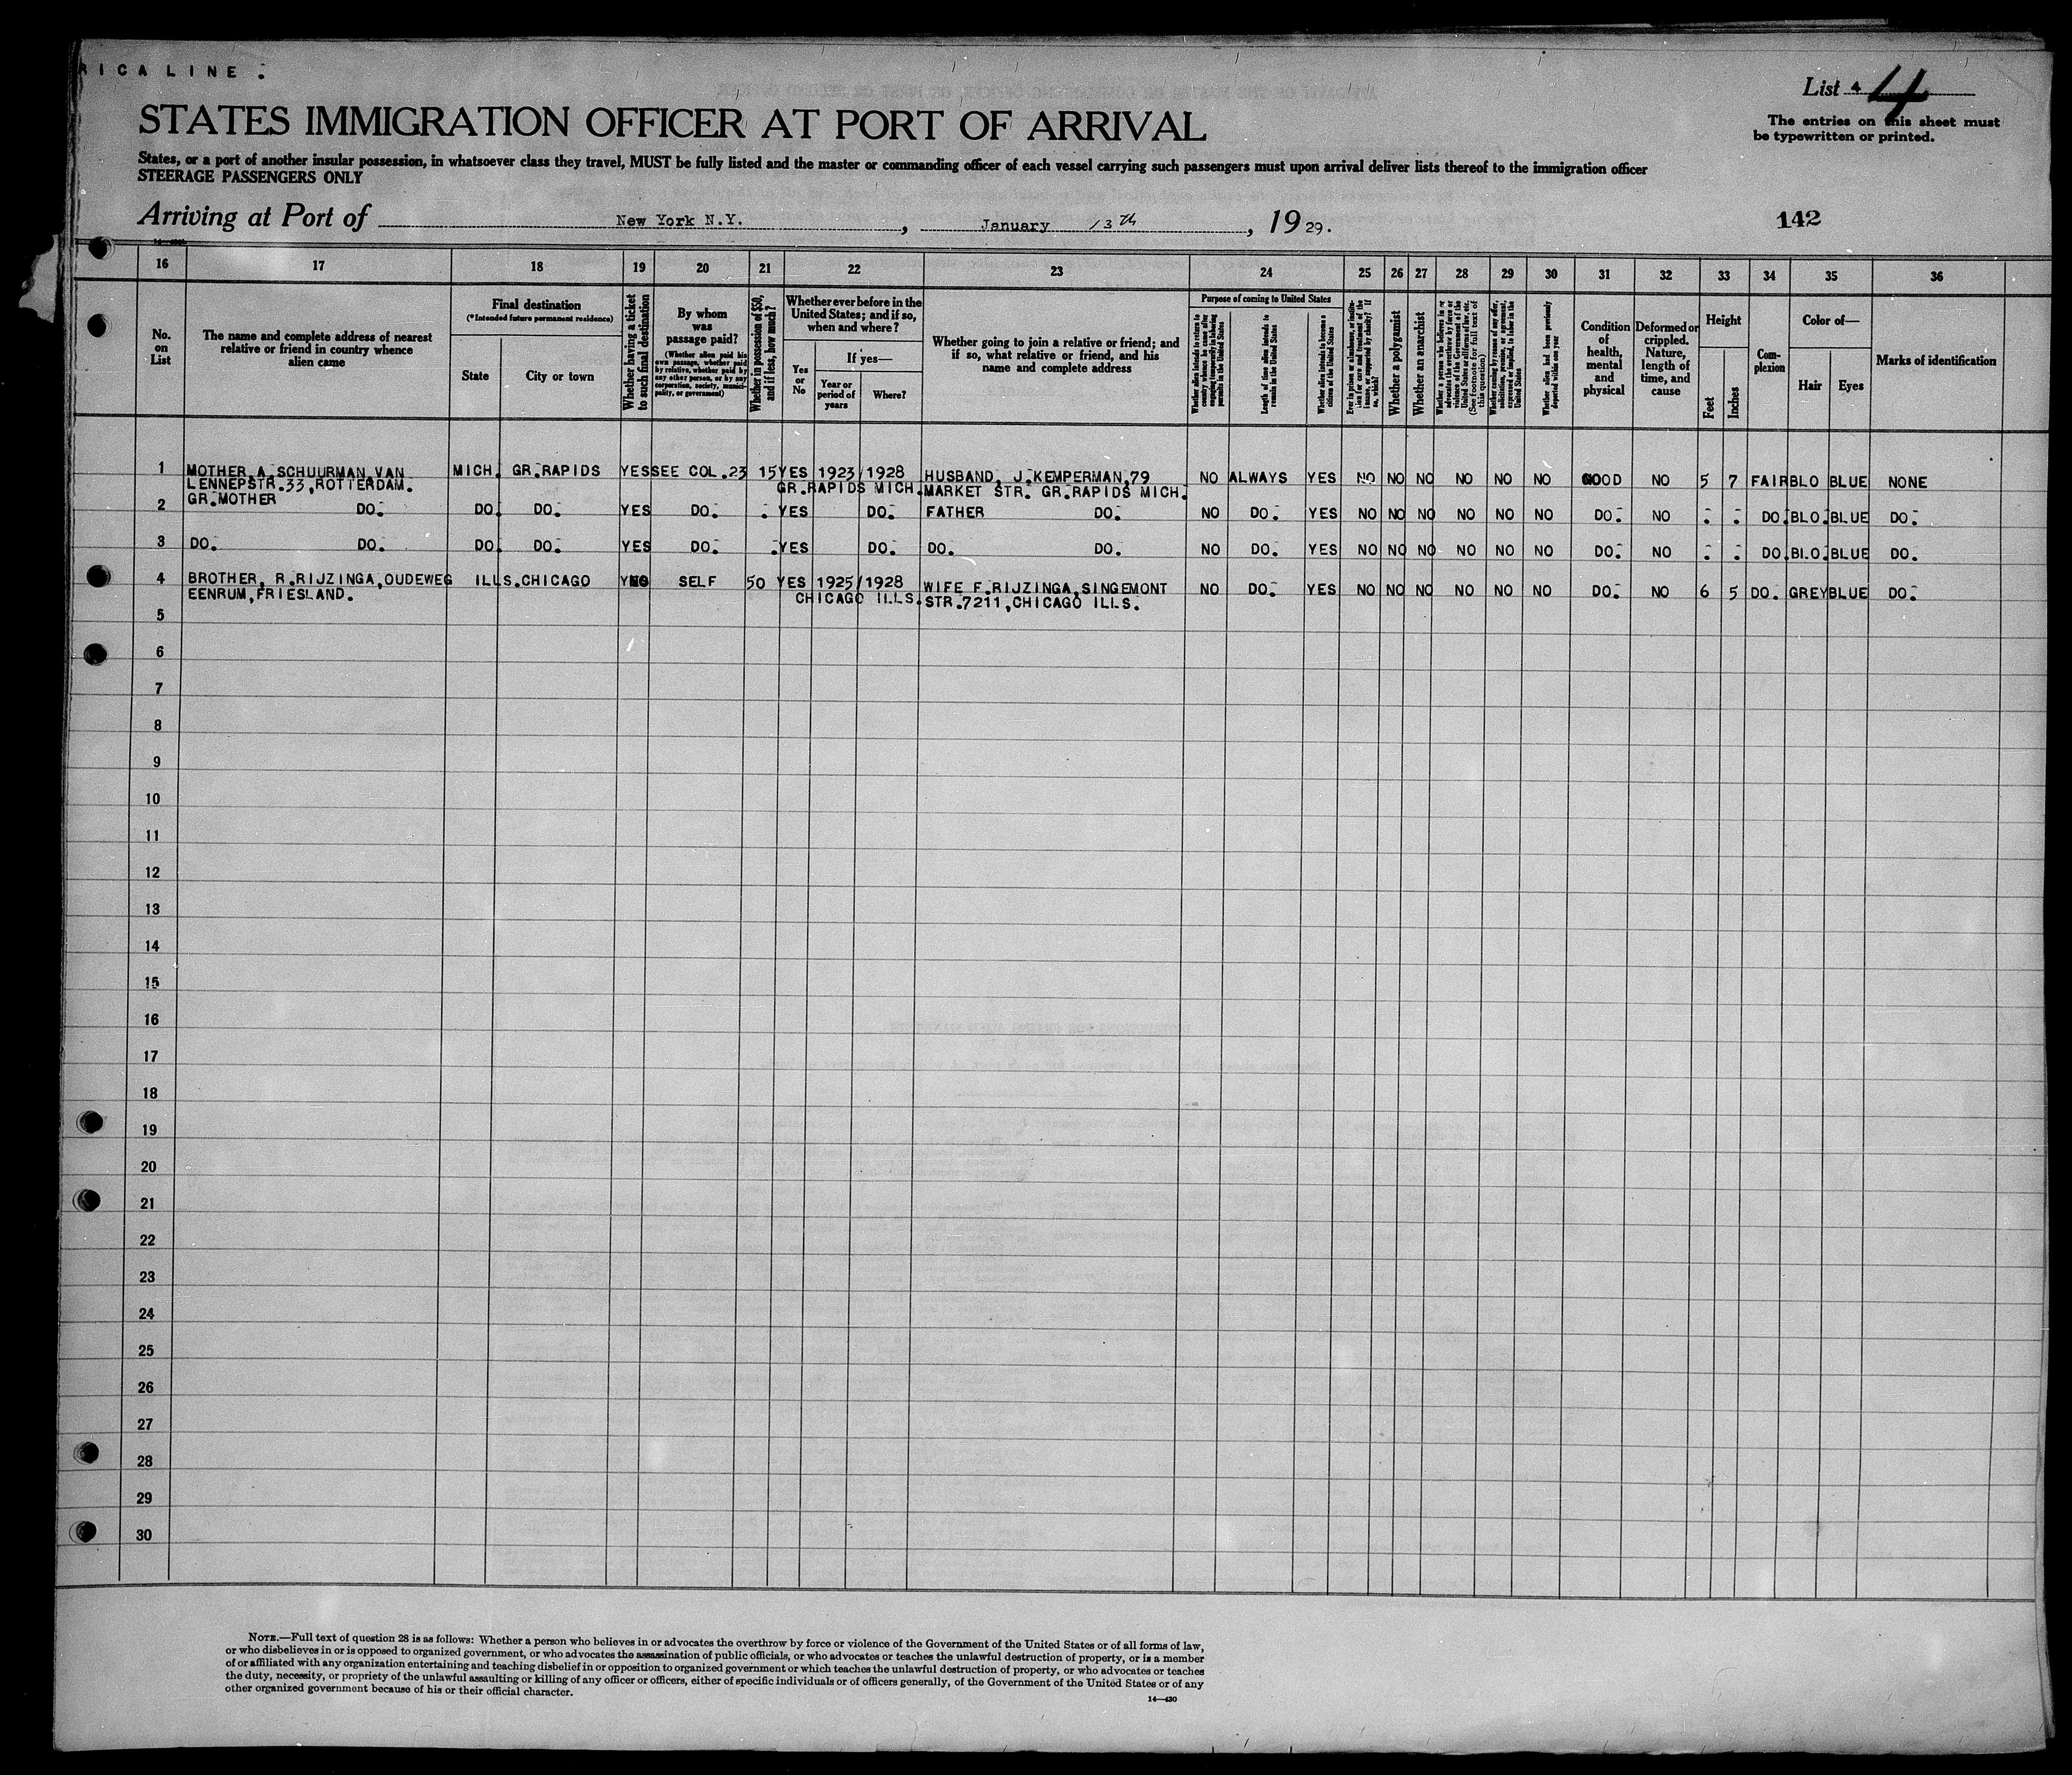 RICA LINE.
List 4 4
STATES IMMIGRATION OFFICER AT PORT OF ARRIVAL
The entries on this sheet must
be typewritten or printed.
States, or a port of another insular possession, in whatsoever class they travel, MUST be fully listed and the master or commanding officer of each vessel carrying such passengers must upon arrival deliver lists thereof to the immigration officer
STEERAGE PASSENGERS ONLY
Arriving at Port of New York N.Y., January 13th, 1929.
142
16 17 18 19 20 21 22 23 24 25 26 27 28 29 30 31 32 33 34 35 36
No.
on
List
The name and complete address of nearest
relative or friend in country whence
alien came
Final destination
(*Intended future permanent residence)
State
City or town
Whether having a ticket
to such final destination
By whom
was
passage paid?
(Whether alien paid his
own passage, whether paid
by relative, whether paid by
any other person, or by any
corporation, society, munici-
pality, or government)
Whether in possession of $50,
and if less, how much?
Whether ever before in the
United States; and if so,
when and where?
Yes
or
No
If yes—
Year or
period of
years
Where?
Whether going to join a relative or friend; and
if so, what relative or friend, and his
name and complete address
Purpose of coming to United States
Whether alien intends to return to
country whence he came after
engaging temporarily in laboring
pursuits in the United States
Length of time alien intends to
remain in the United States
Whether alien intends to become a
citizen of the United States
Whether a polygamist
Whether an anarchist
Whether coming by reason of any offer,
solicitation, promise, or agreement,
expressed or implied, to labor in the
United States
Whether alien had been previously
deported within one year
Condition
of
health,
mental
and
physical
Deformed or
crippled.
Nature,
length of
time, and
cause
Height
Feet
Inches
Com-
plexion
Color of—
Hair
Eyes
Marks of identification
1 MOTHER A. SCHUURMAN VAN MICH. GR.RAPIDS YES SEE COL.23 15 YES 1923/1928 HUSBAND, J.KEMPERMAN,79 NO ALWAYS YES NO NO NO NO NO NO GOOD NO 5 7 FAIR BLO BLUE NONE
LENNEPSTR.33,ROTTERDAM. GR.RAPIDS MICH. MARKET STR. GR.RAPIDS MICH.
2 GR.MOTHER DO. DO. DO. YES DO. . YES DO. FATHER DO. NO DO. YES NO NO NO NO NO NO DO. NO . . DO. BLO. BLUE DO.
3 DO. DO. DO. DO. YES DO. . YES DO. DO. DO. NO DO. YES NO NO NO NO NO NO DO. NO . . DO. BLO. BLUE DO.
4 BROTHER, R.RIJZINGA,OUDEWEG ILLS. CHICAGO SELF 50 YES 1925/1928 WIFE F.RIJZINGA,SINGEMONT NO DO. YES NO NO NO NO NO NO DO. NO 6 5 DO. GREY BLUE DO.
EENRUM,FRIESLAND. CHICAGO ILLS. STR.7211,CHICAGO ILLS.
5
6
7
8
9
10
11
12
13
14
15
16
17
18
19
20
21
22
23
24
25
26
27
28
29
30
NOTE.—Full text of question 28 is as follows: Whether a person who believes in or advocates the overthrow by force or violence of the Government of the United States or of all forms of law,
or who disbelieves in or is opposed to organized government, or who advocates the assassination of public officials, or who advocates or teaches the unlawful destruction of property, or is a member
of or affiliated with any organization entertaining and teaching disbelief in or opposition to organized government or which teaches the unlawful destruction of property, or who advocates or teaches
the duty, necessity, or propriety of the unlawful assaulting or killing of any officer or officers, either of specific individuals or of officers generally, of the Government of the United States or of any
other organized government because of his or their official character.
14—430